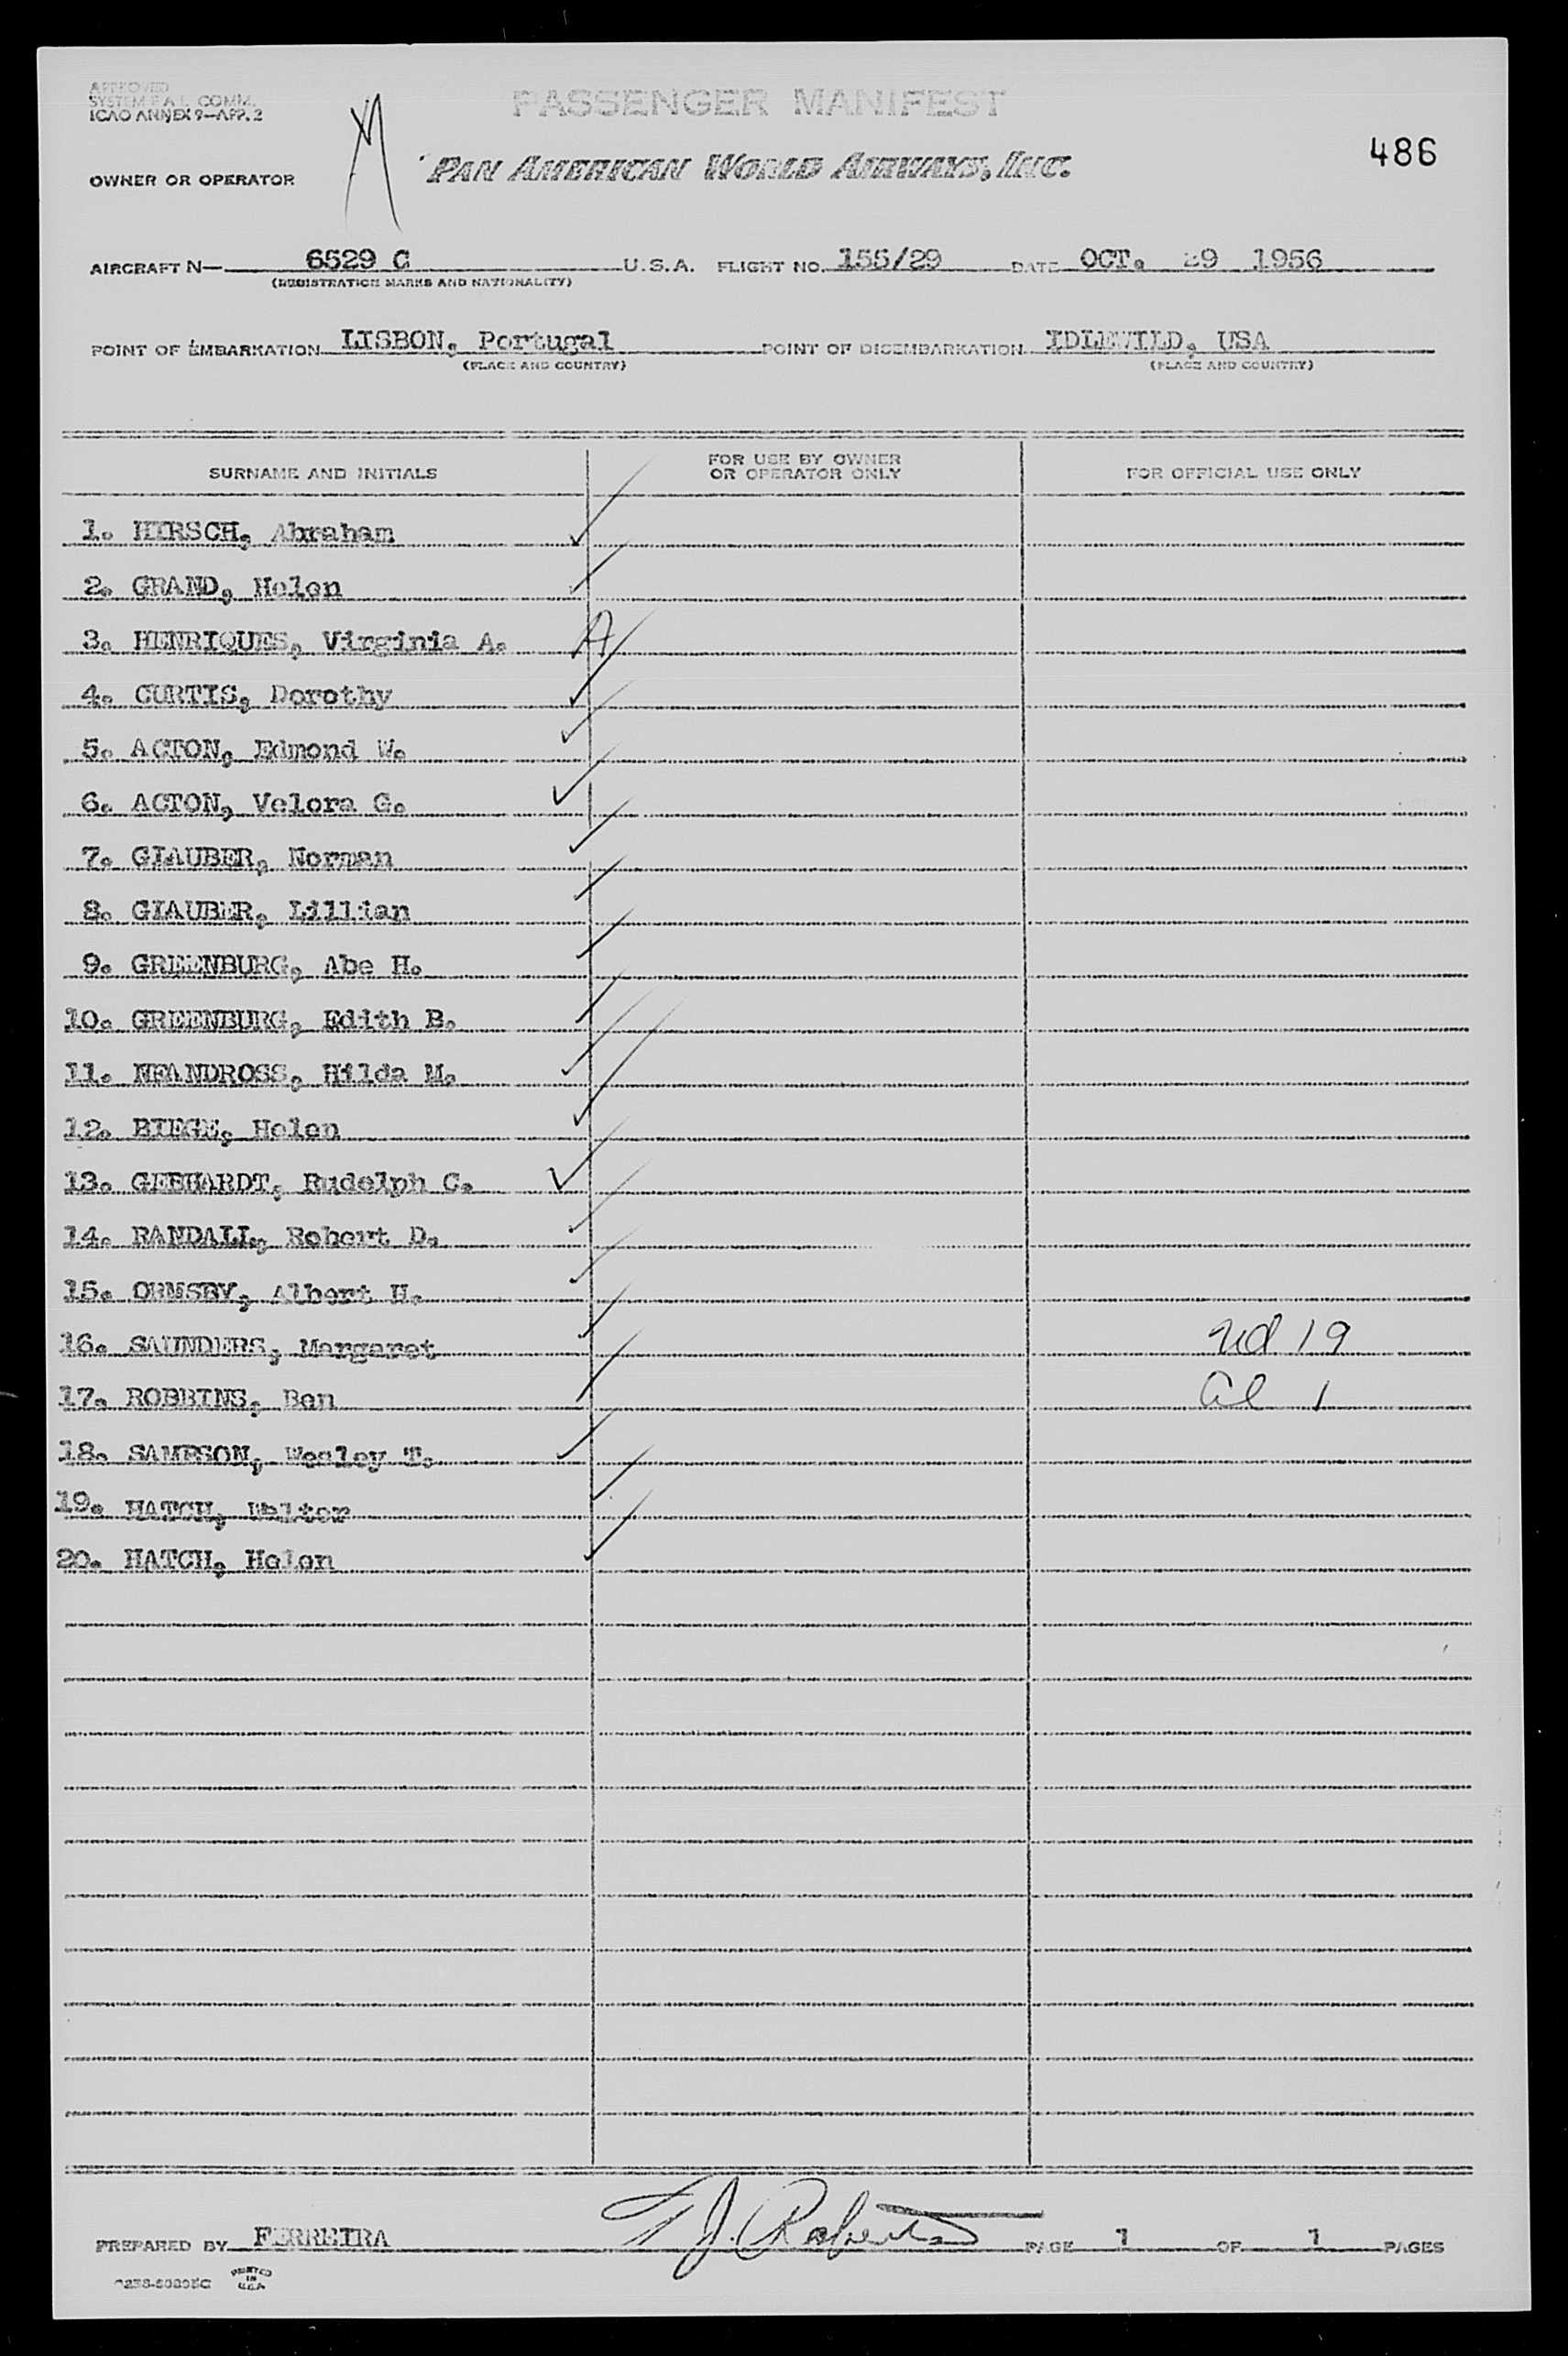 APPROVED
SYSTEM F.A.L. COMM.
ICAO ANNEX 9—APP. 2
PASSENGER MANIFEST
486
OWNER OR OPERATOR PAN AMERICAN WORLD AIRWAYS, INC.
AIRCRAFT N— 6529 C U.S.A. FLIGHT NO. 155/29 DATE OCT. 29 1956
(REGISTRATION MARKS AND NATIONALITY)
POINT OF EMBARKATION LISBON, Portugal POINT OF DISEMBARKATION IDLEWILD, USA
(PLACE AND COUNTRY) (PLACE AND COUNTRY)
SURNAME AND INITIALS FOR USE BY OWNER OR OPERATOR ONLY FOR OFFICIAL USE ONLY
1. HIRSCH, Abraham
2. GRAND, Helen
3. HENRIQUES, Virginia A. A
4. CURTIS, Dorothy
5. ACTON, Edmond W.
6. ACTON, Velora G.
7. GLAUBER, Norman
8. GLAUBER, Lillian
9. GREENBURG, Abe H.
10. GREENBURG, Edith B.
11. NEANDROSS, Hilda M.
12. BIEGE, Helen
13. GEBHARDT, Rudolph C.
14. RANDALL, Robert D.
15. ORMSBY, Albert H.
16. SAUNDERS, Margaret 19
17. ROBBINS, Ben al 1
18. SAMPSON, Wesley T.
19. HATCH, Walter
20. HATCH, Helen
PREPARED BY FERREIRA T J. Roberts PAGE 1 OF 1 PAGES
PRINTED
IN
U.S.A.